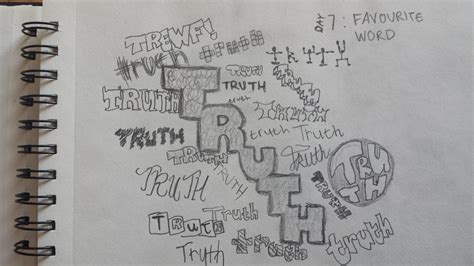 DAY 7: FAVOURITE
WORD
TREWF!
truth
#truth
TRUTH
TRUTH
TRUTH
TRUTH
truth
TRUTH
TRUTH
TRUTH
truth Truth
TRUTH
TRUTH
Truth
TRUTH
TRUTH
TRUTH
TRUTH
TRUTH
Truth
Truth
truth
truth